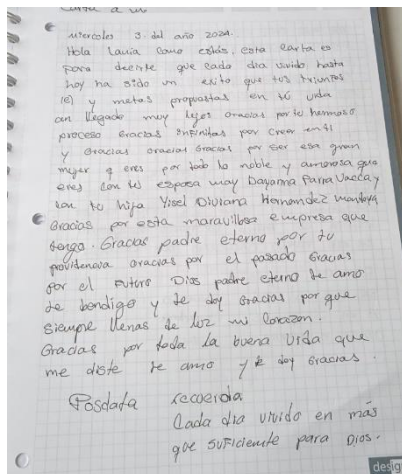 Carta a un
miercoles 3. del año 2024.
Hola Laura como estás, esta carta es
para decirte que cada dia vivido hasta
hoy ha sido un exito que tus triunfos
(e) y metas propuestas en tú vida
an llegado muy lejos Gracias por tu hermoso
proceso Gracias infinitas por creer en ti
y Gracias Gracias Gracias por ser esa gran
mujer q eres por todo lo noble y amorosa que
eres con tu esposa may Dayama Parra Vacca y
con tu hija Yisel Diviana Hernandez
Gracias por esta maravillosa empresa que
tengo. Gracias padre eterno por tu
providencia Gracias por el pasado Gracias
por el Futuro Dios padre eterno te amo
te bendigo y te doy Gracias por que
siempre llenas de luz mi Corazon.
Gracias por toda la buena vida que
me diste te amo y te doy Gracias.
Posdata recuerda
Cada dia vivido en más
que suficiente para Dios.
desig